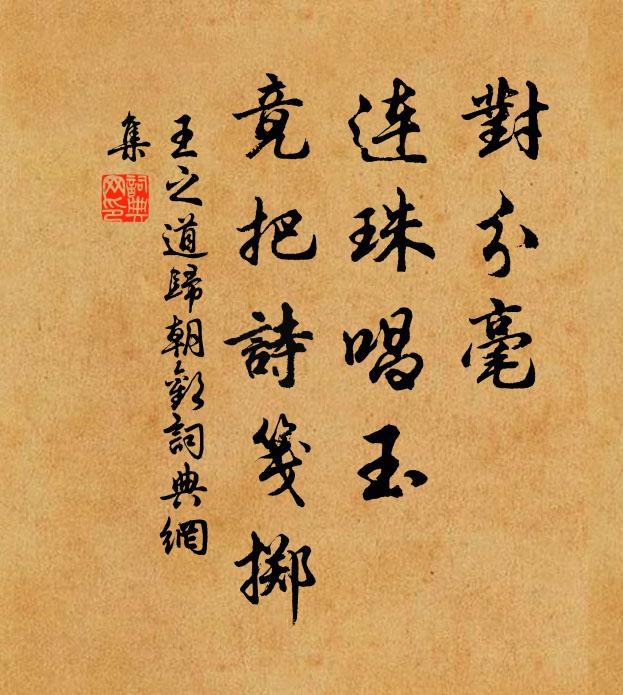 對分毫
連珠唱玉
竟把詩箋擲
王之道歸朝歡詞典網
集
詞典网印